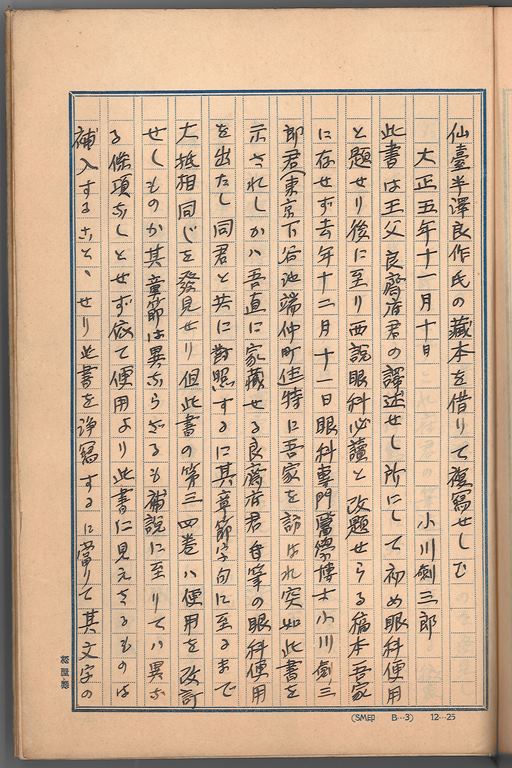 仙臺半澤良作氏の藏本を借りて複寫せしむ
大正五年十一月十日　小川劍三郎
此書は王父良齋府君の譯述せし所にして初め眼科便用
と題せり後に至り西說眼科必讀と改題せらる稿本吾家
に存せず去年十二月十一日眼科專門醫學博士小川劍三
郎君(東京下谷池端仲町住)特に吾家を訪はれ突如此書を
示されしかハ吾直に家藏せる良齋府君自筆の眼科便用
を出たし同君と共に對照するに其章節字句に至るまで
大抵相同じを發見せり但此書の第三四卷ハ便用を改訂
せしものか其章節は異ならざるも補說に至りてハ異な
る條項なしとせず依て便用より此書に見えざるものは
補入することゝせり此書を淨寫するに當りて其文字の
(SM印　B…3)　12…25